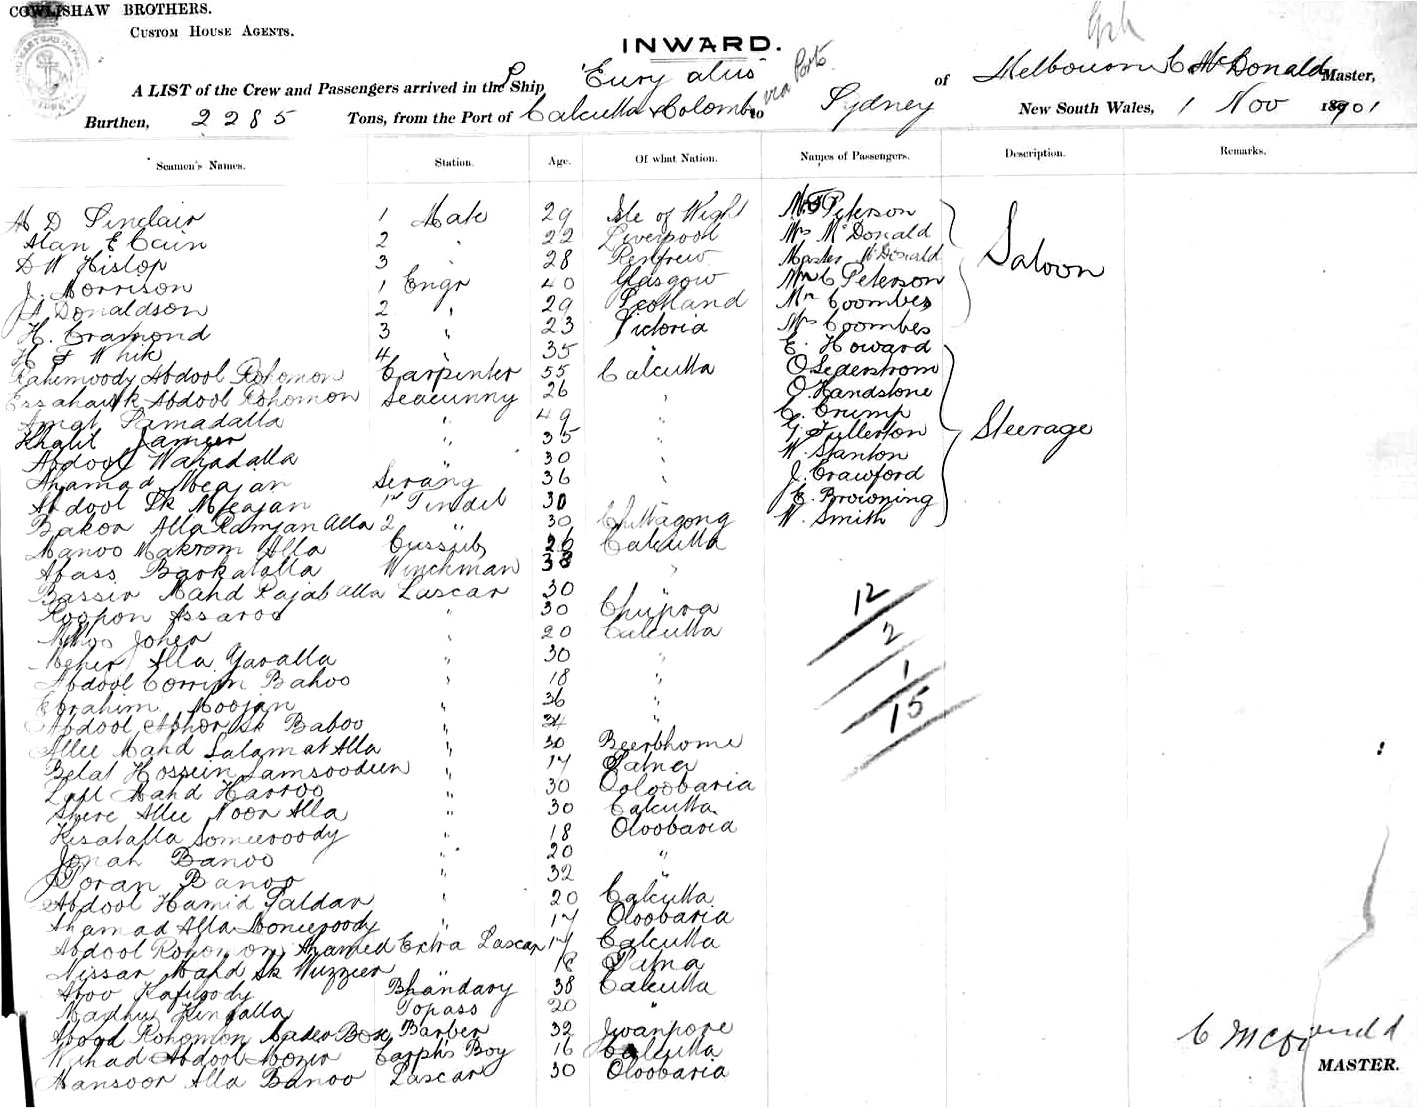 COWLISHAW BROTHERS.
CUSTOM HOUSE AGENTS.
INWARD.
A LIST of the Crew and Passengers arrived in the S Ship "Euryalus" of Melbourne C McDonald Master,
Burthen, 2285 Tons, from the Port of Calcutta & Colombo via Ports to Sydney New South Wales, 1 Nov 1901
Seamen's Names. Station. Age. Of what Nation. Names of Passengers. Description. Remarks.
A D Sinclair 1 Mate 29 Isle of Wight Peterson
Alan E Cain 2 " 22 Liverpool Mrs McDonald
D W Hislop 3 " 28 Renfrew Master McDonald Saloon
J. Morrison 1 Engr 40 Glasgow C Peterson
Donaldson 2 " 29 Scotland Mr Coombes
H. Cramond 3 " 23 Victoria Mrs Coombes
H F White 4 " 35 " E. Howard
Rahimoody Abdool Rohomon Carpenter 55 Calcutta O Sederstrom
Abdool Rohomon Seacunny 26 " O Handstone
Ramadalla " 49 " C. Crump
Khalil " 35 " G. Fullerton Steerage
Abdool Wahadalla " 30 " W. Stanton
Ahamad Meajan Serang 36 " J. Crawford
Abdool Sk Meajan 1st Tindel 30 E. Browning
Bakor Alla Ramjan Alla 2 " 30 Chittagong W. Smith
Manoo Makrom Alla Cussub 26 Calcutta
Abass Barkatalla Winchman 38 "
Bassir Mahd Rajab Alla Lascar 30 "
Roopon Assaroo " 30 Chupra
Joher " 20 Calcutta
Meher Alla Yaralla " 30 "
Abdool Corrim Bahoo " 18 "
Ebrahim Moojan " 36 "
Abdool Sk Baboo " 34 "
Allee Mahd Salamat Alla " 30 Beerbhome
Belat Hossein Samsoodeen " 17 Patna
Lall Mahd Harroo " 30 Ooloobaria
Shere Allee Noor Alla " 30 Calcutta
Kisatalla Someeroody " 18 Oloobaria
Jonah Banoo " 20 "
Toran Banoo " 32 "
Abdool Hamid Paldar " 20 Calcutta
Ahamad Alla " 17 Oloobaria
Abdool Rohomon Ahamed Extra Lascar 17 Calcutta
Nissar Mahd Sk Wuzzeer " 18 Patna
Aboo Bhandary 38 Calcutta
Topass 20 "
Abood Rohomon Barber 32 Jwanpore
Abdool Capt's Boy 16 Calcutta
Mansoor Alla Banoo Lascar 30 Oloobaria
12
2
1
15
C McDonald
MASTER.